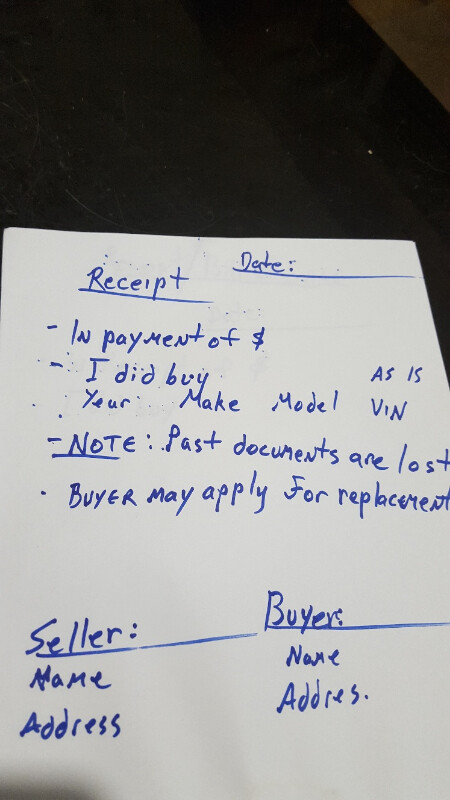 Date:
Receipt
- In payment of $
- I did buy AS IS
Year Make Model VIN
- NOTE: Past documents are lost
. BUYER may apply For replacement
Seller: Buyer:
Name Name
Address Addres.